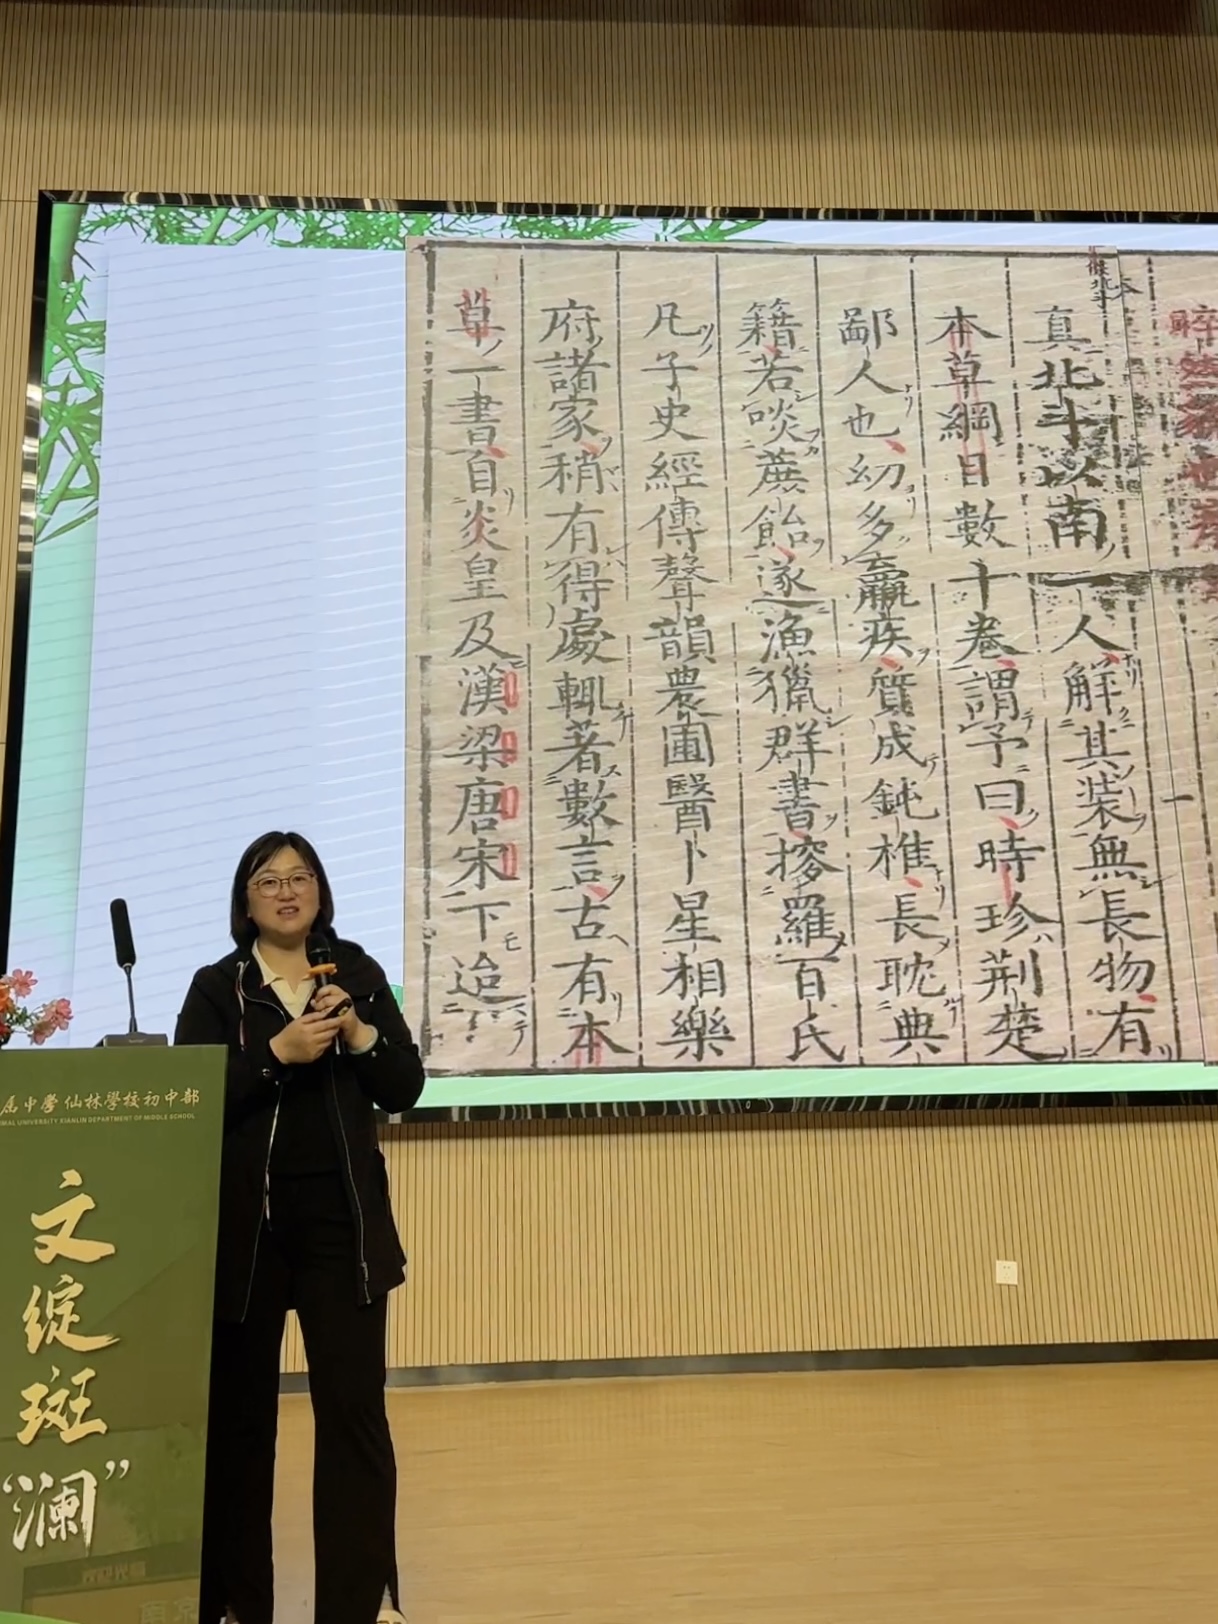 真北斗以南一人解其装無長物有
本草綱目數十卷謂予曰時珍荆楚
鄙人也幼多羸疾質成鈍椎長耽典
籍若啖蔗飴遂漁獵群書搜羅百氏
凡子史經傳聲韻農圃醫卜星相樂
府諸家稍有得處輒著數言古有本
草一書自炎皇及漢梁唐宋下迨
属中學仙林學校初中部
UNIVERSITY XIANLIN DEPARTMENT OF MIDDLE SCHOOL
文绽斑“澜”
南京